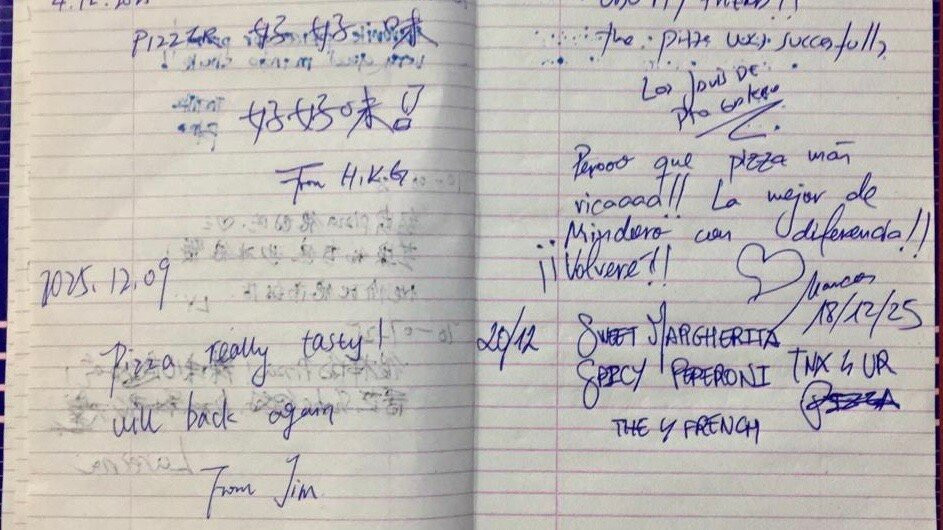 4.12.202
PIZZER 好好味
好好味
From H.K.G.
2025.12.09
Pizza really tasty!
will back again
From Jim
The pizza was successfully
Los DE
Perooo que pizza más
ricaaaa!! La mejor de
¡¡ Mindoro con diferencia!!
¡¡ Volveré!!
Marcos
18/12/25
20/12 SWEET MARGHERITA
SPICY PEPERONI TNX 4 UR
PIZZA
THE 4 FRENCH